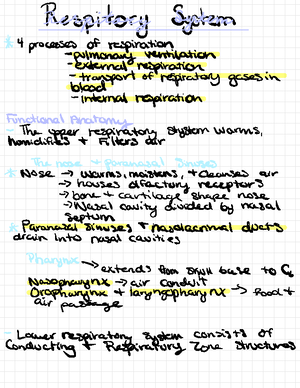 Respitory System
* 4 processes of respiration
- pulmonary ventilation
- external respiration
- transport of repiratory gases in
blood
- internal respiration
Functional Anatomy
- The upper respiratory system warms,
humidifies + Filters air
The nose + Paranasal Sinuses
* Nose → warms, moistens, + cleanses air
→ houses olfactory receptors
→ bone + cartilage shape nose
→ Nasal cavity divided by nasal
septum
* Paranasal sinuses + nasolacrimal ducts
drain into nasal cavities
Pharynx → extends from skull base to C6
Nasopharynx → air conduit
Oropharynx + laryngopharynx → food +
air passage
- Lower respiratory system consists of
Conducting + Respiratory Zone structures